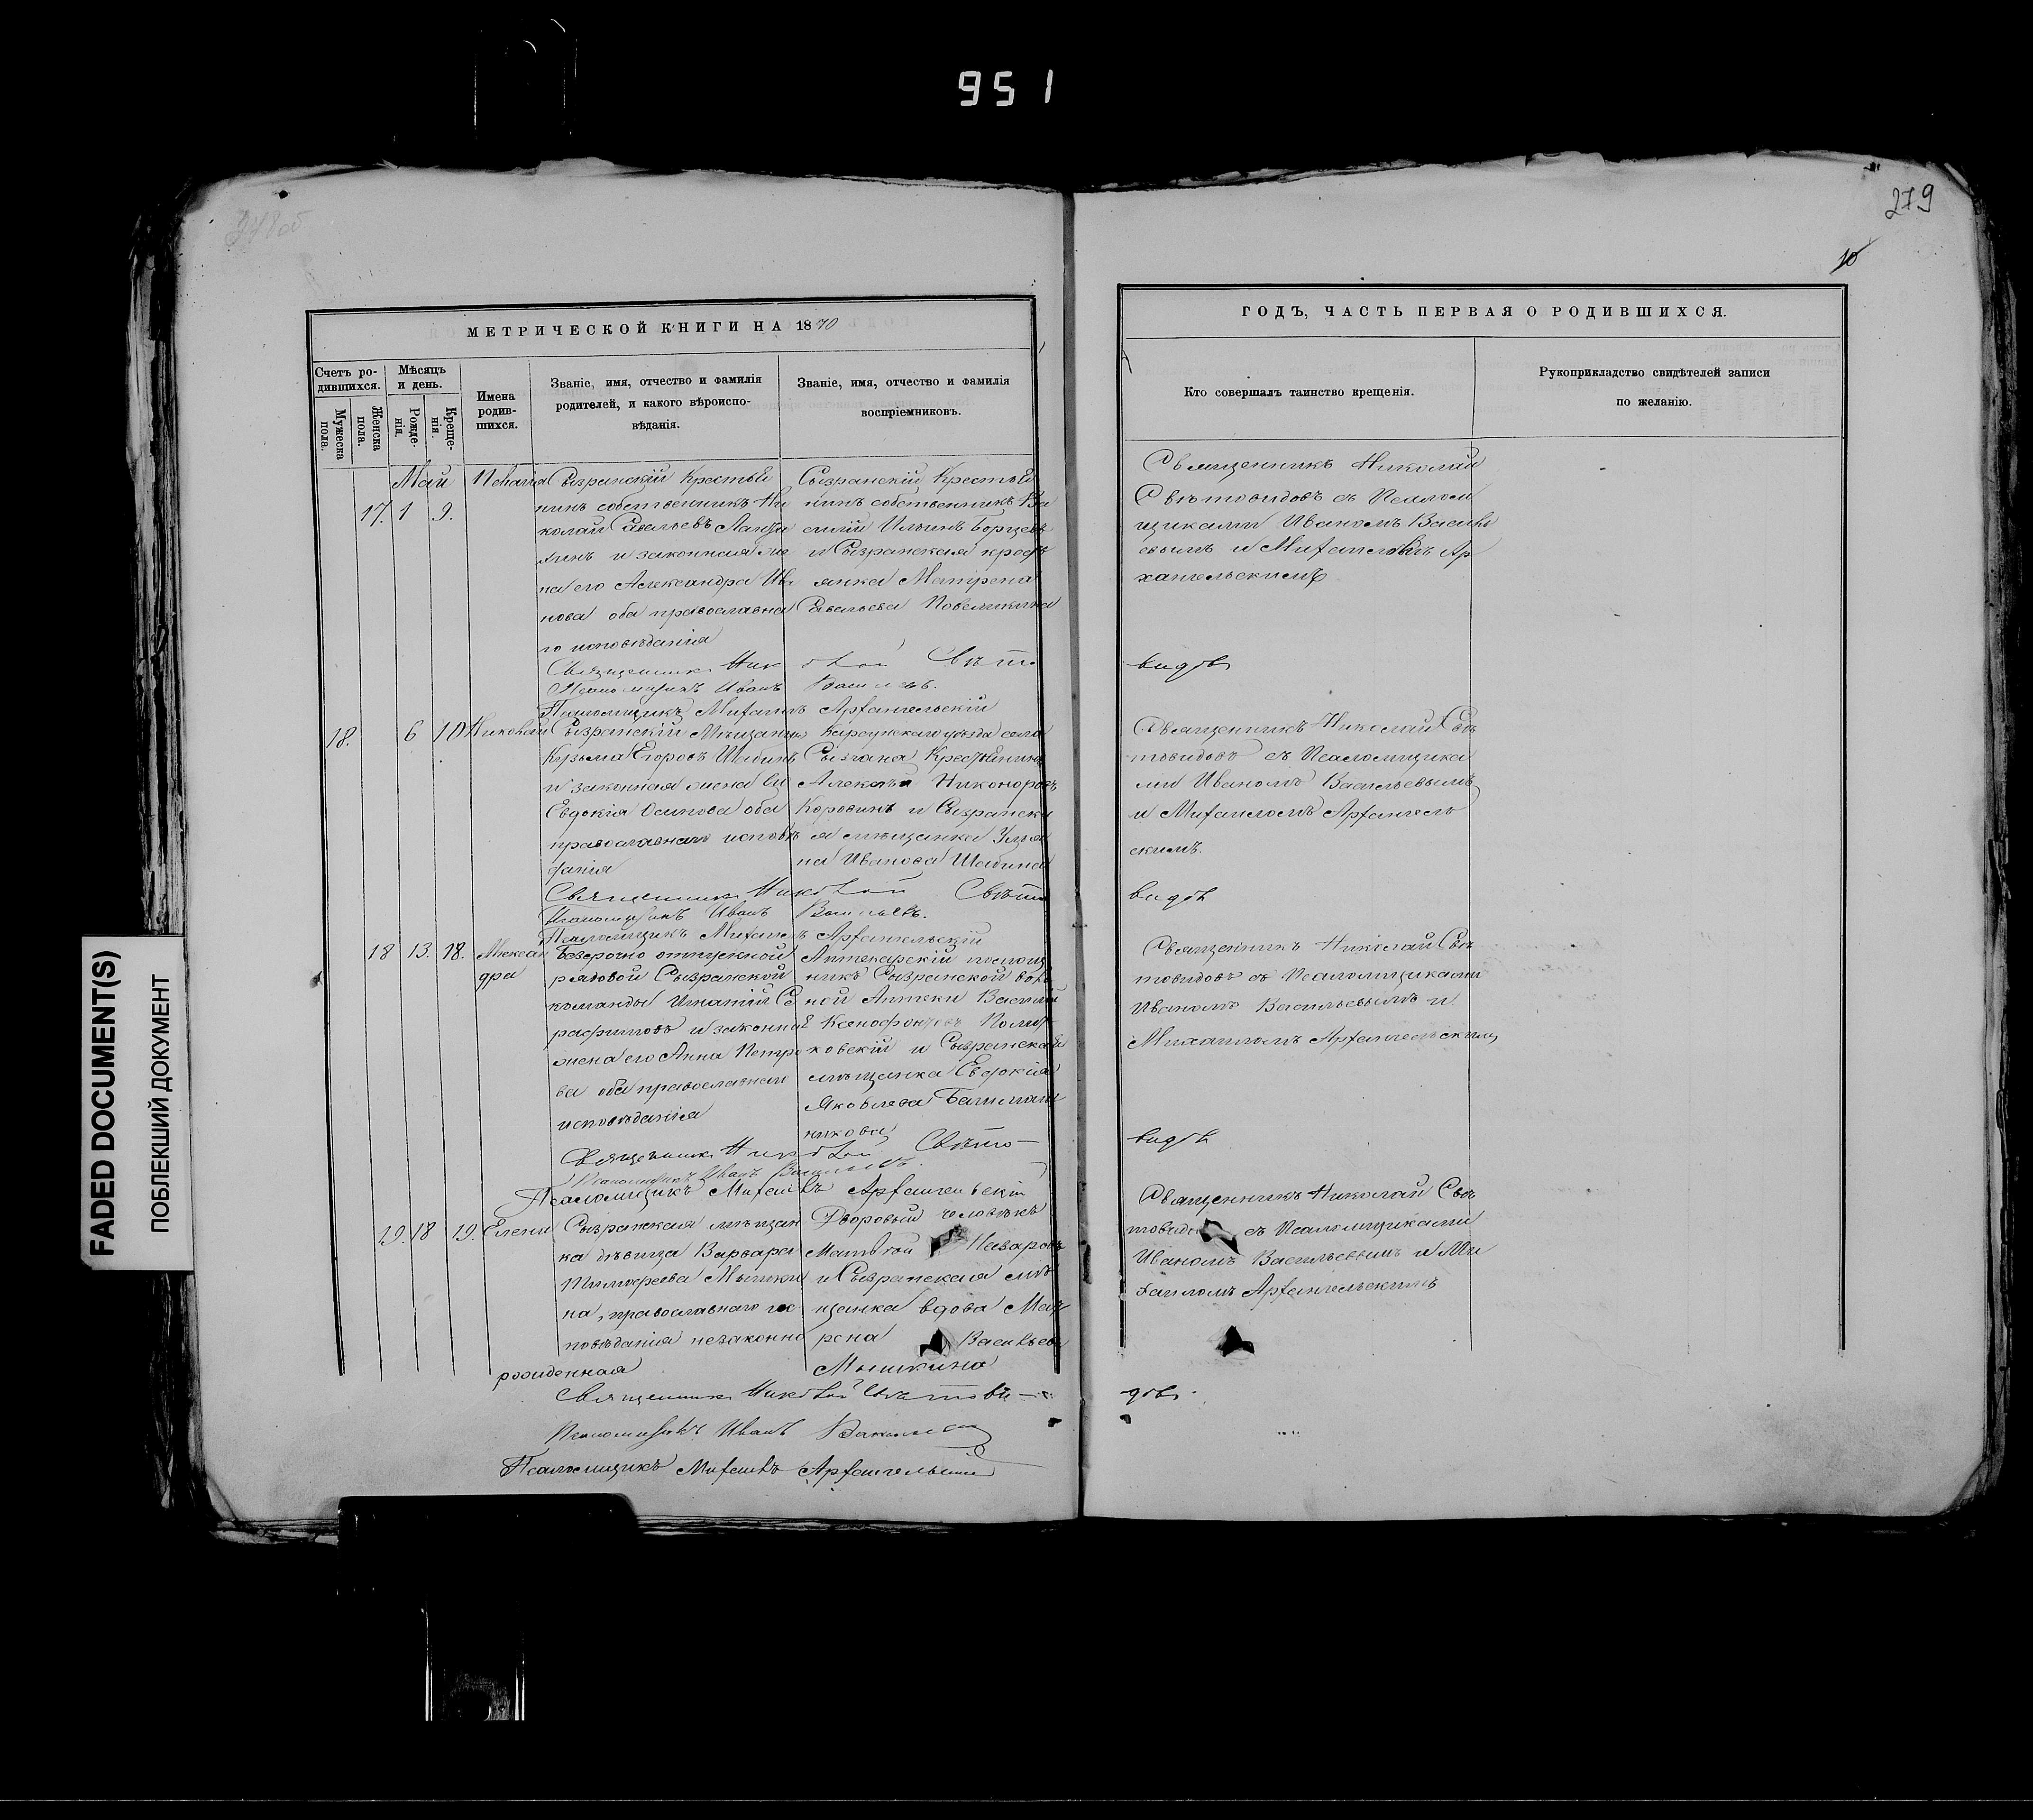 951
279
10
МЕТРИЧЕСКОЙ КНИГИ НА 1870
ГОДЪ, ЧАСТЬ ПЕРВАЯ О РОДИВШИХСЯ.
Счетъ ро-
дившихся.
Мужеска
пола.
Женска
пола.
Мѣсяцъ
и день.
Рожде-
нія.
Креще-
нія.
Имена
родив-
шихся.
Званіе, имя, отчество и фамилія
родителей, и какого вѣроиспо-
вѣданія.
Званіе, имя, отчество и фамилія
воспріемниковъ.
Кто совершалъ таинство крещенія.
Рукоприкладство свидѣтелей записи
по желанію.
Май
17. 1 9.
Сызранскій Крестья
нинъ собственникъ Ни
колай Савельевъ
и законная же
на его Александра Ива
нова оба православна
го исповѣданія
Сызранскій Крестья
нинъ собственникъ Ва
силій Ильинъ
и Сызранская кресть
янка Матрена
Савельева
Священникъ Николай
Свѣтовидовъ съ Псалом
щиками Иваномъ Василь
евымъ и Михаиломъ Ар
хангельскимъ
Священникъ Николай Свѣто
видовъ
Псаломщикъ Иванъ Васильевъ.
Псаломщикъ Михаилъ Архангельскій
18. 6 10 Николай
Сызранскій Мѣщанинъ
Кузьма Егоровъ
и законная жена его
Евдокія Осипова оба
православнаго исповѣ
данія
Карсунскаго уѣзда села
Сызгана Крестьянинъ
Алексѣй Никоноровъ
Коровинъ и Сызранска
я мѣщанка Улья
на Иванова
Священникъ Николай Свѣ
товидовъ съ Псаломщика
ми Иваномъ Васильевымъ
и Михаиломъ Архангель
скимъ.
Священникъ Николай Свѣто
видовъ
Псаломщикъ Иванъ Васильевъ.
Псаломщикъ Михаилъ Архангельскій
18 13. 18. Алексан
дра
Безсрочно отпускной
рядовой Сызранской
команды Игнатій Се
рафимовъ и законная
жена его Анна Петро
ва оба православнаго
исповѣданія
Аптекарскій помощ
никъ Сызранской воль
ной Аптеки Василій
Ксенофонтовъ
ковскій и Сызранская
мѣщанка Евдокія
Яковлева Башмаш
никова
Священникъ Николай Свѣ
товидовъ съ Псаломщиками
Иваномъ Васильевымъ и
Михаиломъ Архангельскимъ
Священникъ Николай Свѣто-
видовъ
Псаломщикъ Иванъ Васильевъ.
Псаломщикъ Михаилъ Архангельскій
19. 18 19. Елена
Сызранская мѣщан
ка дѣвица Варвара
Тимофеева Мышки
на, православнаго ис
повѣданія незаконно
рожденная
Дворовый человѣкъ
Матвѣй Назаровъ
и Сызранская мѣ
щанка вдова Мат
рена Васильева
Мышкина
Священникъ Николай Свѣ
товидовъ съ Псаломщиками
Иваномъ Васильевымъ и Ми
хаиломъ Архангельскимъ
Священникъ Николай Свѣтови-
довъ.
Псаломщикъ Иванъ Васильевъ
Псаломщикъ Михаилъ Архангельскій
FADED DOCUMENT(S)
ПОБЛЕКШИЙ ДОКУМЕНТ